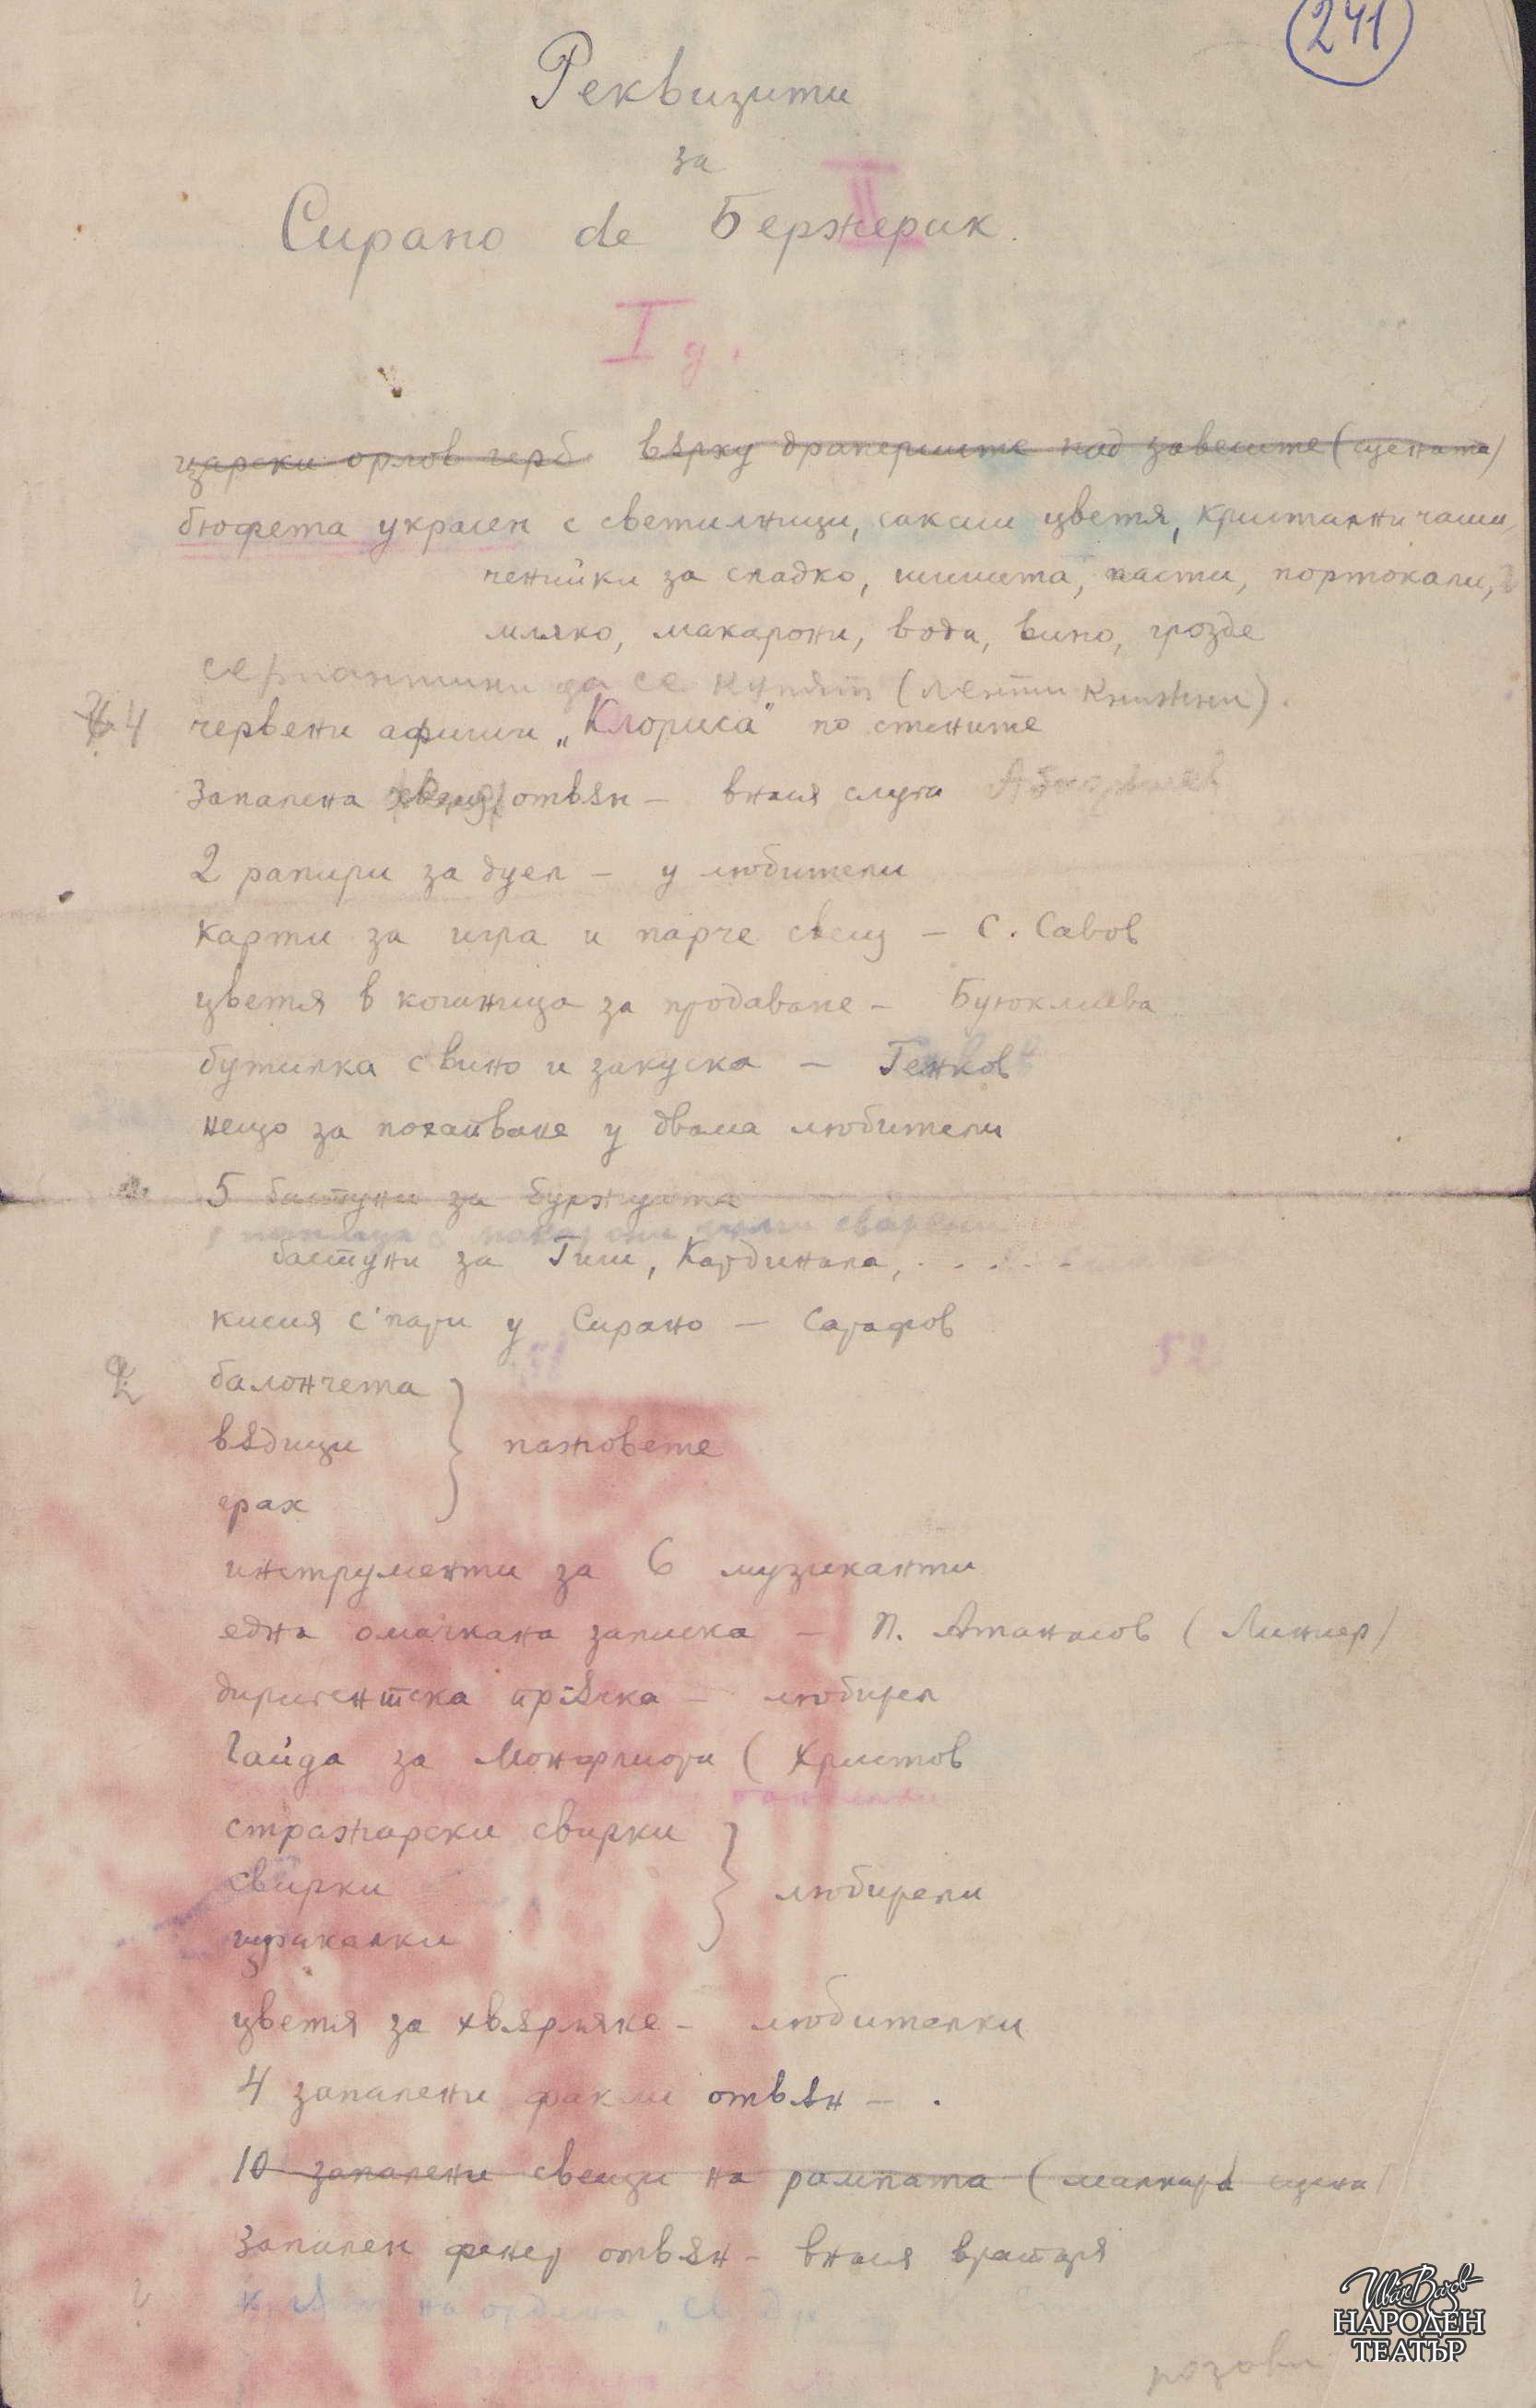 241
Реквизити
за
II
Сирано de Бержерак.
I д.
царски орлов герб вѫрху драпериите над завесите (сцената)
бюфета украсен с светилници, саксии цветя, кристални чаши,
ченийки за сладко, шишета, пасти, портокали,
мляко, макарони, вода, вино, грозде
серпантини да се купят (ленти книжни).
4 червени афиши „Клориса" по стените
Запалена свещ отвѫн – внася слуга
2 рапири за дуел – у любители
карти за игра и парче свещ – С. Савов
цветя в кошница за продаване – Буюклиева
бутилка с вино и закуска – Генков
нещо за похапване у двама любители
5 бастуни за буржуата
бастуни за Гиш, Кардинала, . . . . .
кисия с пари у Сирано – Сарафов
52
балончета
вѫдици
пажовете
грах
инструменти за 6 музиканти
една омачкана записка – П. Атанасов (Линиер)
диригентска прѫчка – любител
Гайда за Монфлюри (Христов
стражарски свирки
свирки
любители
щракалки
цветя за хвѫрляне – любителки
4 запалени факли отвѫн – .
10 запалени свещи на рампата (малката сцена)
Запален фенер отвѫн – внася вратаря
на ордена
розови
Иван Вазов
НАРОДЕН
ТЕАТЪР